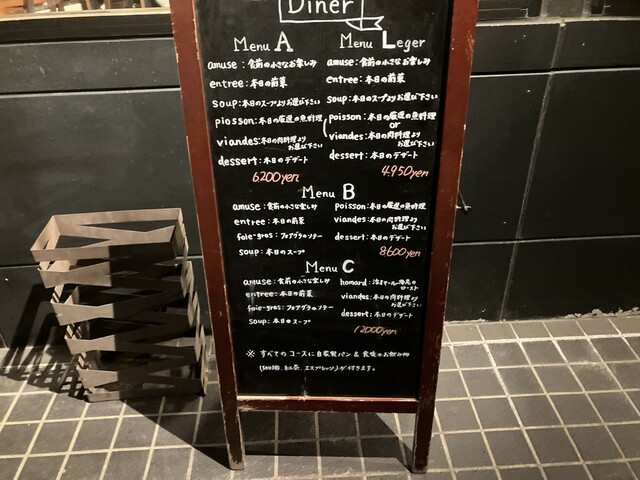 Diner
Menu A
amuse : 食前の小さなお楽しみ
entree : 本日の前菜
soup : 本日のスープよりお選び下さい
piosson : 本日の厳選の魚料理
viandes : 本日の肉料理より
お選び下さい
dessert : 本日のデザート
6200yen
Menu Leger
amuse : 食前の小さなお楽しみ
entree : 本日の前菜
soup : 本日のスープよりお選び下さい
poisson : 本日の厳選の魚料理
or
viandes : 本日の肉料理より
お選び下さい
dessert : 本日のデザート
4.950yen
Menu B
amuse : 食前の小さな楽しみ
entree : 本日の前菜
foie-gras : フォアグラのソテー
soup : 本日のスープ
poisson : 本日の厳選の魚料理
viandes : 本日の肉料理より
お選び下さい
dessert : 本日のデザート
8600yen
Menu C
amuse : 食前の小さな楽しみ
entree : 本日の前菜
foie-gras : フォアグラのソテー
soup : 本日のスープ
homard : オマール海老の
ロースト
viandes : 本日の肉料理より
お選び下さい
dessert : 本日のデザート
12000yen
※ すべてのコースに自家製パン & 食後のお飲み物
紅茶、エスプレッソ)が付きます。